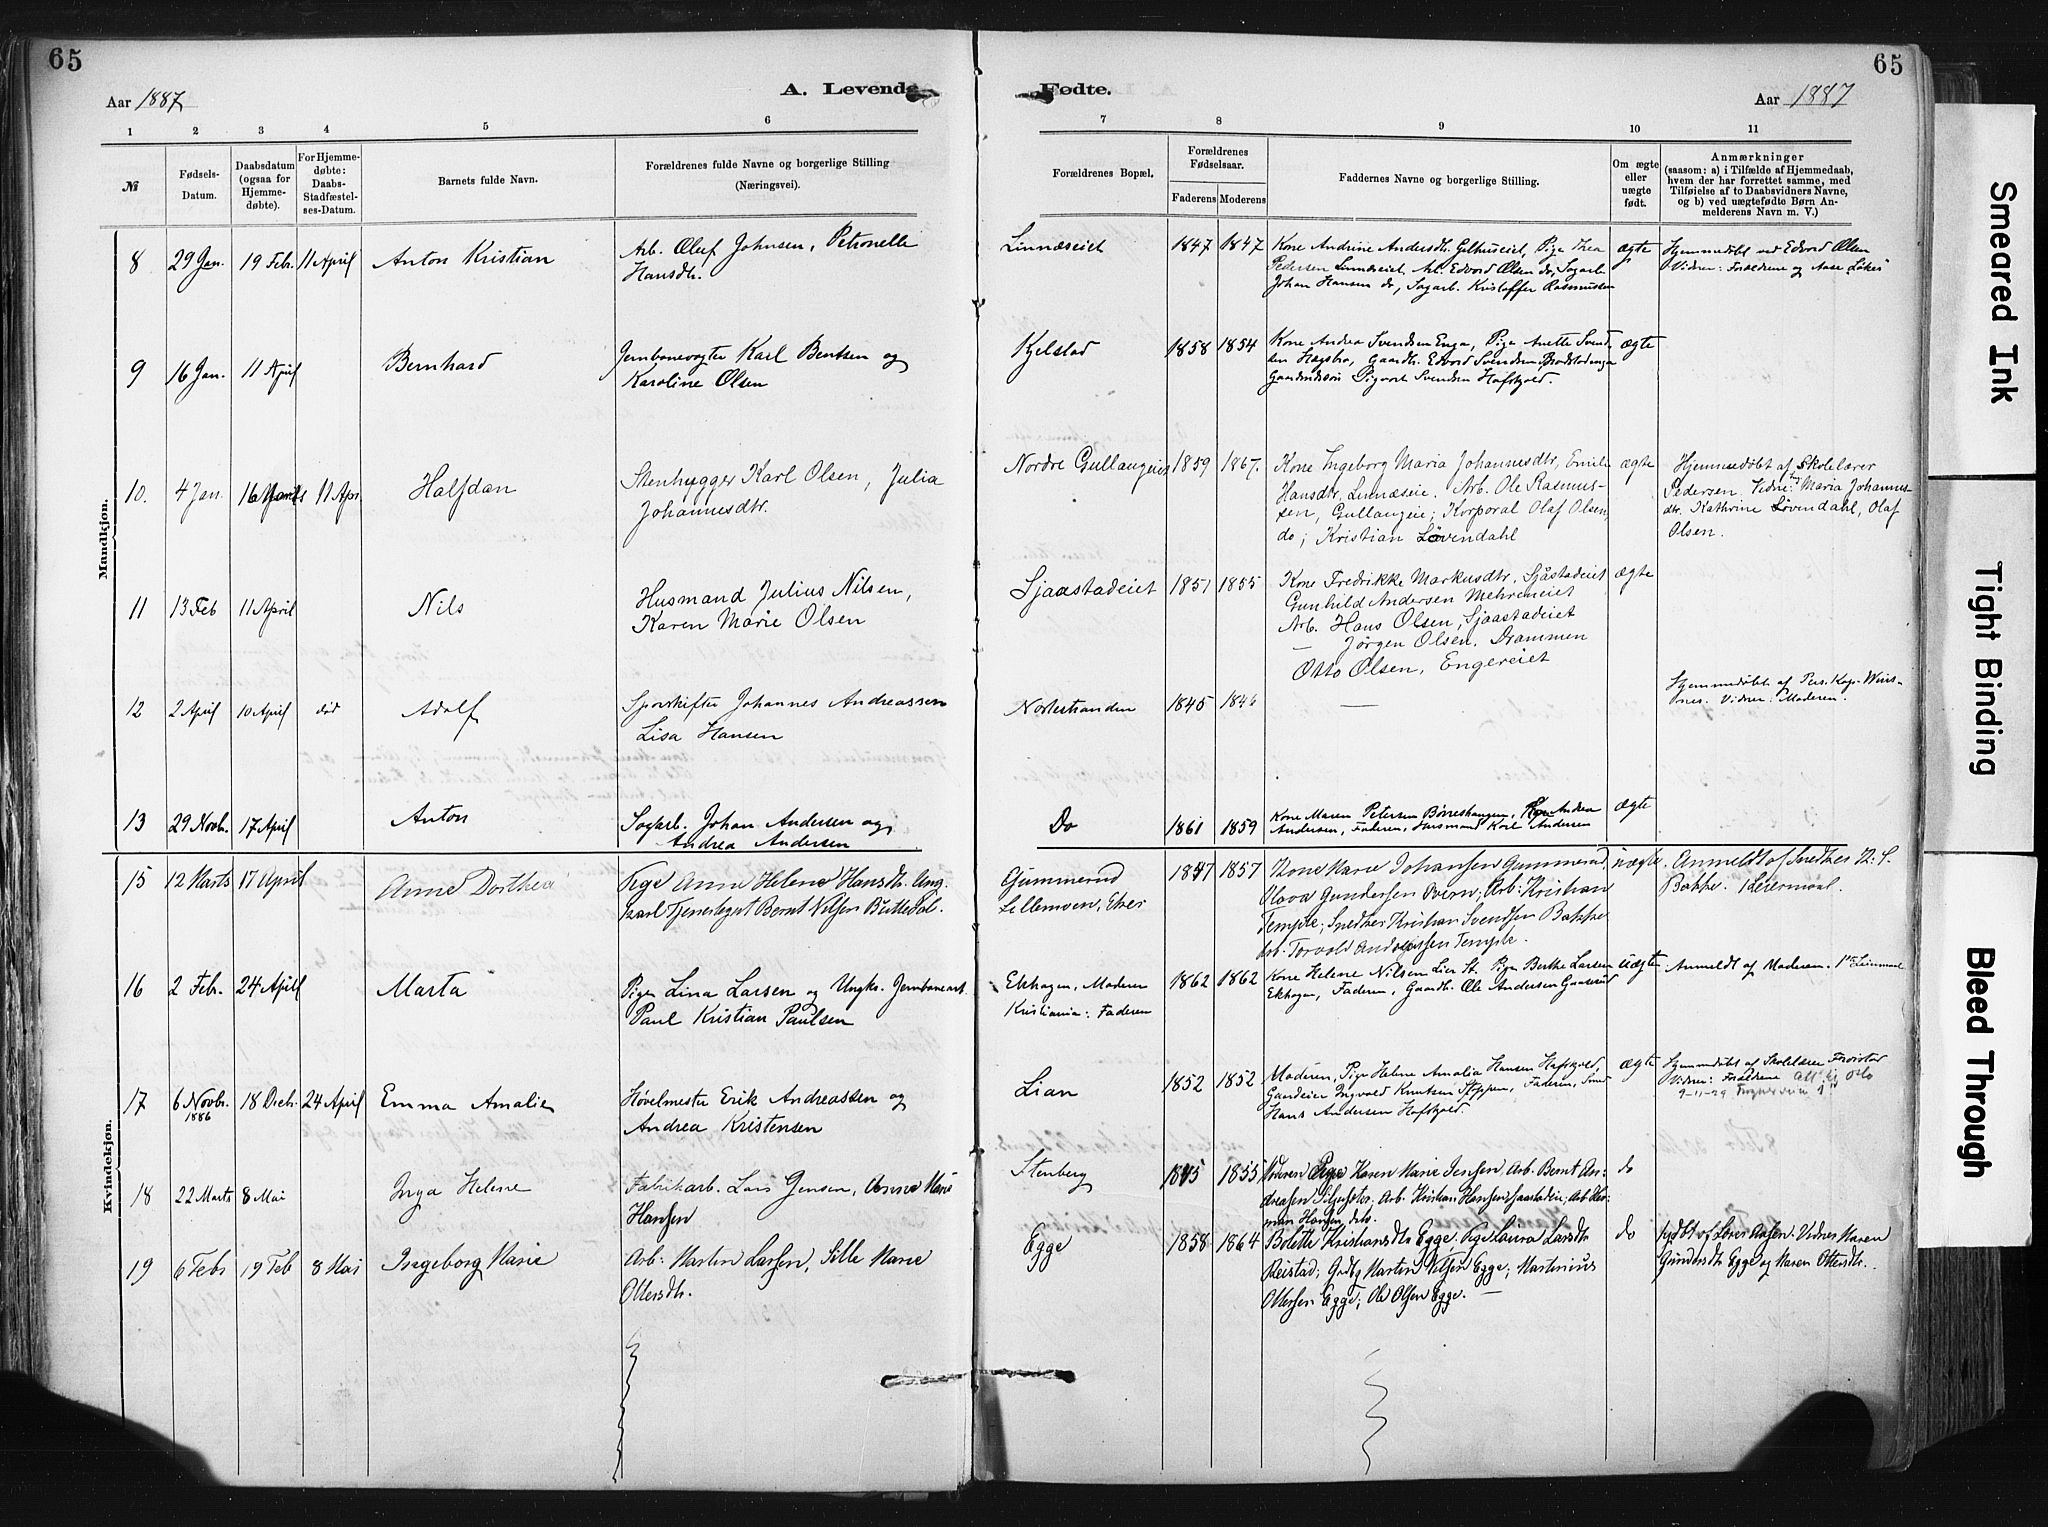 65
65
Aar 1887
A. Levende
Fødte.
Aar 1887
1 2 3 4 5 6 7 8 9 10 11
№
Fødsels-
Datum.
Daabsdatum
(ogsaa for
Hjemme-
døbte).
For Hjemme-
døbte:
Daabs-
Stadfæstel-
ses-Datum.
Barnets fulde Navn.
Forældrenes fulde Navne og borgerlige Stilling
(Næringsvei).
Forældrenes Bopæl.
Forældrenes
Fødselsaar.
Faderens Moderens
Faddernes Navne og borgerlige Stilling.
Om ægte
eller
uægte
født.
Anmærkninger
(saasom: a) i Tilfælde af Hjemmedaab,
hvem der har forrettet samme, med
Tilføielse af to Daabsvidners Navne,
og b) ved uægtefødte Børn An-
melderens Navn m. V.)
Mandkjøn.
8 29 Jan. 19 Feb. 11 April Anton Kristian
Arb. Oluf Johnsen, Petronelle
Hansdtr.
Linnæseiet 1847 1847
Kone Andrine Andersdtr. Gulhuseiet, Pige Thea
Pedersen Linnæseiet, Arb. Edvard Olsen do, Sagarb.
Johan Hansen do, Sagarb. Kristoffer Rasmussen
ægte
Hjemmedøbt ved Edvard Olsen
Vidner: Forældrene og Aase
9 16 Jan. 11 April Bernhard
Jernbanevogter Karl Bentsen og
Karoline Olsen
Kjelstad 1858 1854
Kone Andrea Svendsen Enga, Pige Anette Svend-
sen Hagstra, Gaardb. Edvard Svendsen
Sigvart Svendsen Hafskjold.
ægte
10. 4 Jan. 16 Marts 11 Apr. Halfdan
Stenhugger Karl Olsen, Julia
Johannesdtr.
Nordre Gullaugeiet 1859 1867.
Kone Ingeborg Maria Johannesdtr, Emilie
Hansdtr, Linnæseie. Arb. Ole Rasmus-
sen, Gullaugeie; Korporal Olaf Olsen,
do; Kristian Løvendahl
ægte
Hjemmedøbt af Skolelærer
Pedersen. Vidne: Maria Johannes-
dtr. Kathrine Løvendahl, Olaf
Olsen.
11 13 Feb 11 April Nils
Husmand Julius Nilsen,
Karen Marie Olsen
Sjaastadeiet 1851 1855
Kone Fredrikke Markusdtr, Sjåstadeiet
Gunhild Andersen Mehreneiet
Arb. Hans Olsen, Sjaastadeiet
— Jörgen Olsen, Drammen
Otto Olsen, Engereiet
ægte
12 2 April 10 April did Adolf
Sporskifter Johannes Andreassen
Lisa Hansen
Nostestranden 1845 1846
—
Hjemmedøbt af Pers. Kap.
Vidner: Moderen.
13 29 Novb. 17 April Anton
Sagarb. Johan Andersen og
Andrea Andersen
Do 1861 1859
Kone Maren Petersen Børreshaugen, Andrea
Andersen, Faderen, Husmand Karl Andersen
ægte
Kvindekjøn.
15 12 Marts 17 April Anne Dorthea
Pige Anne Helene Hansdtr. Ung-
karl Tjenestegut Bernt Nilsen
Gummerud
Lillemoen, Eker
1847 1857
Kone Marie Johansen Gummerud,
Olava Gundersen Overn; Arb: Kristian
Temple; Snedker Kristian Svendsen Bakke
Arb. Torvald Andersen Temple.
uægte.
Anmeldt af Snedker K. S.
Bakke. 1 Leiermaal.
16 2 Feb. 24 April Marta
Pige Lina Larsen og Ungk. Jernbanearb.
Paul Kristian Paulsen
Ekhagen, Moderen
Kristiania: Faderen
1862 1862
Kone Helene Nilsen Lier St. Pige Berthe Larsen
Ekhagen, Faderen, Gaardb. Ole Andersen Gaaserud
uægte
Anmeldt af Moderen.
17 6 Novb. 1886 18 Decb. 24 April Emma Amalie
Høvelmester Erik Andreassen og
Andrea Kristensen
Lian 1852 1852
Moderen, Pige Helene Amalia Hansen Hafskjold,
Gaardeier Ingvald Knutsen Stoppen, Faderen,
Hans Andersen Hafskjold.
ægte
Hjemmedøbt af Skolelærer
Vidner: Forældrene Oslo
9-11-29
18 22 Marts 8 Mai Inga Helene
Fabrikarb. Lars Jensen, Anne Marie
Hansen
Stenberg 1845 1855
Moderen Pige Karen Marie Jensen, Arb. Bernt An-
dreasen Arb. Kristian Hansen Sjaastadeie; Arb. Her-
man Hansen, dito.
do
19 6 Feb 19 Feb 8 Mai Ingeborg Marie
Arb: Martin Larsen, Sille Marie
Ottersdtr.
Egge 1858 1864
Bolette Kristiansdtr Egge, Pige Laura Larsdtr
Reistad; Grdbr Martin Nilsen Egge; Martinius
Ottersen Egge; Ole Olsen Egge. —
do
Vidner Maren
Gundersdtr Egge og Maren Ottersdtr.
Smeared Ink
Tight Binding
Bleed Through